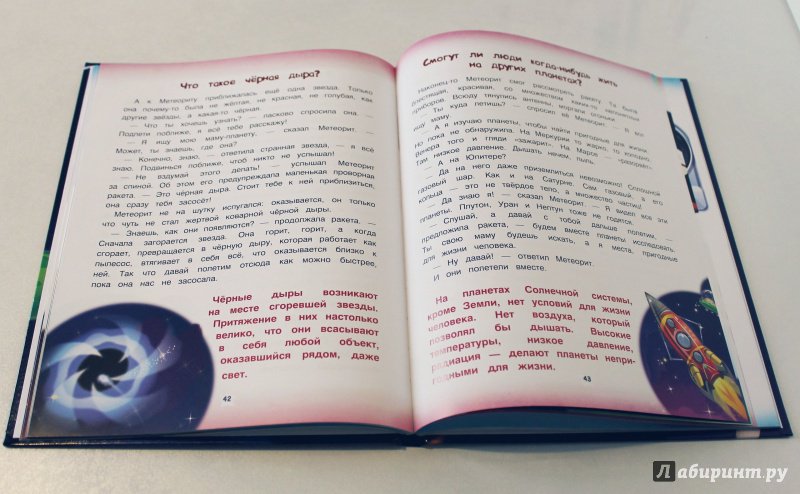 Что такое чёрная дыра?
А к Метеориту приближалась ещё одна звезда. Только
она почему-то была не жёлтая, не красная, не голубая, как
другие звёзды, а какая-то чёрная.
— Что ты хочешь узнать? — ласково спросила она. —
Подлети поближе, я всё тебе расскажу!
— Я ищу мою маму-планету, — сказал Метеорит. —
Может, ты знаешь, где она?
— Конечно, знаю, — ответила странная звезда, — я всё
знаю. Подвинься поближе, чтоб никто не услышал!
— Не вздумай этого делать! — услышал Метеорит
за спиной. Об этом его предупреждала маленькая проворная
ракета. — Это чёрная дыра. Стоит тебе к ней приблизиться,
она сразу тебя засосёт!
Метеорит не на шутку испугался: оказывается, он только
что чуть не стал жертвой коварной чёрной дыры.
— Знаешь, как они появляются? — продолжала ракета.
Сначала загорается звезда. Она горит, горит, а когда
сгорает, превращается в чёрную дыру, которая работает как
пылесос, втягивает в себя всё, что оказывается близко к
ней. Так что давай полетим отсюда как можно быстрее,
пока она нас не засосала.
Чёрные дыры возникают
на месте сгоревшей звезды.
Притяжение в них настолько
велико, что они всасывают
в себя любой объект,
оказавшийся рядом, даже
свет.
42
Смогут ли люди когда-нибудь жить
на других планетах?
Наконец-то Метеорит смог рассмотреть ракету. Та была
блестящая, красивая, со множеством каких-то непонятных
приборов. Всюду тянулись антенны, моргали огоньки.
— Ты куда летишь? — спросил её Метеорит. — Я вот
ищу маму.
— А я изучаю планеты, чтобы найти пригодные для жизни.
Но пока не обнаружила. На Меркурии то жарит, то холодно.
Венера того и гляди «зажарит». На Марсе — «разорвёт»,
там низкое давление. Дышать нечем, пыль.
— А на Юпитере?
— Да на него даже приземлиться невозможно! Сплошной
газовый шар. Как и на Сатурне. Сам газовый, а его
кольца — это не твёрдое тело, а множество частиц!
— Да знаю я! — сказал Метеорит. — Я видел все эти
планеты. Плутон, Уран и Нептун тоже не годятся.
— Слушай, а давай с тобой дальше полетим, —
предложила ракета, — будем вместе планеты исследовать.
Ты свою маму будешь искать, а я места, пригодные
для жизни человека.
— Ну давай! — ответил Метеорит.
И они полетели вместе.
На планетах Солнечной системы,
кроме Земли, нет условий для жизни
человека. Нет воздуха, который
позволял бы дышать. Высокие
температуры, низкое давление,
радиация — делают планеты непри-
годными для жизни.
43
Лабиринт.ру